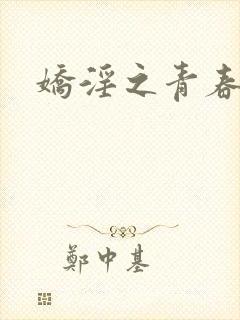 嬌淫之青春
鄭中基